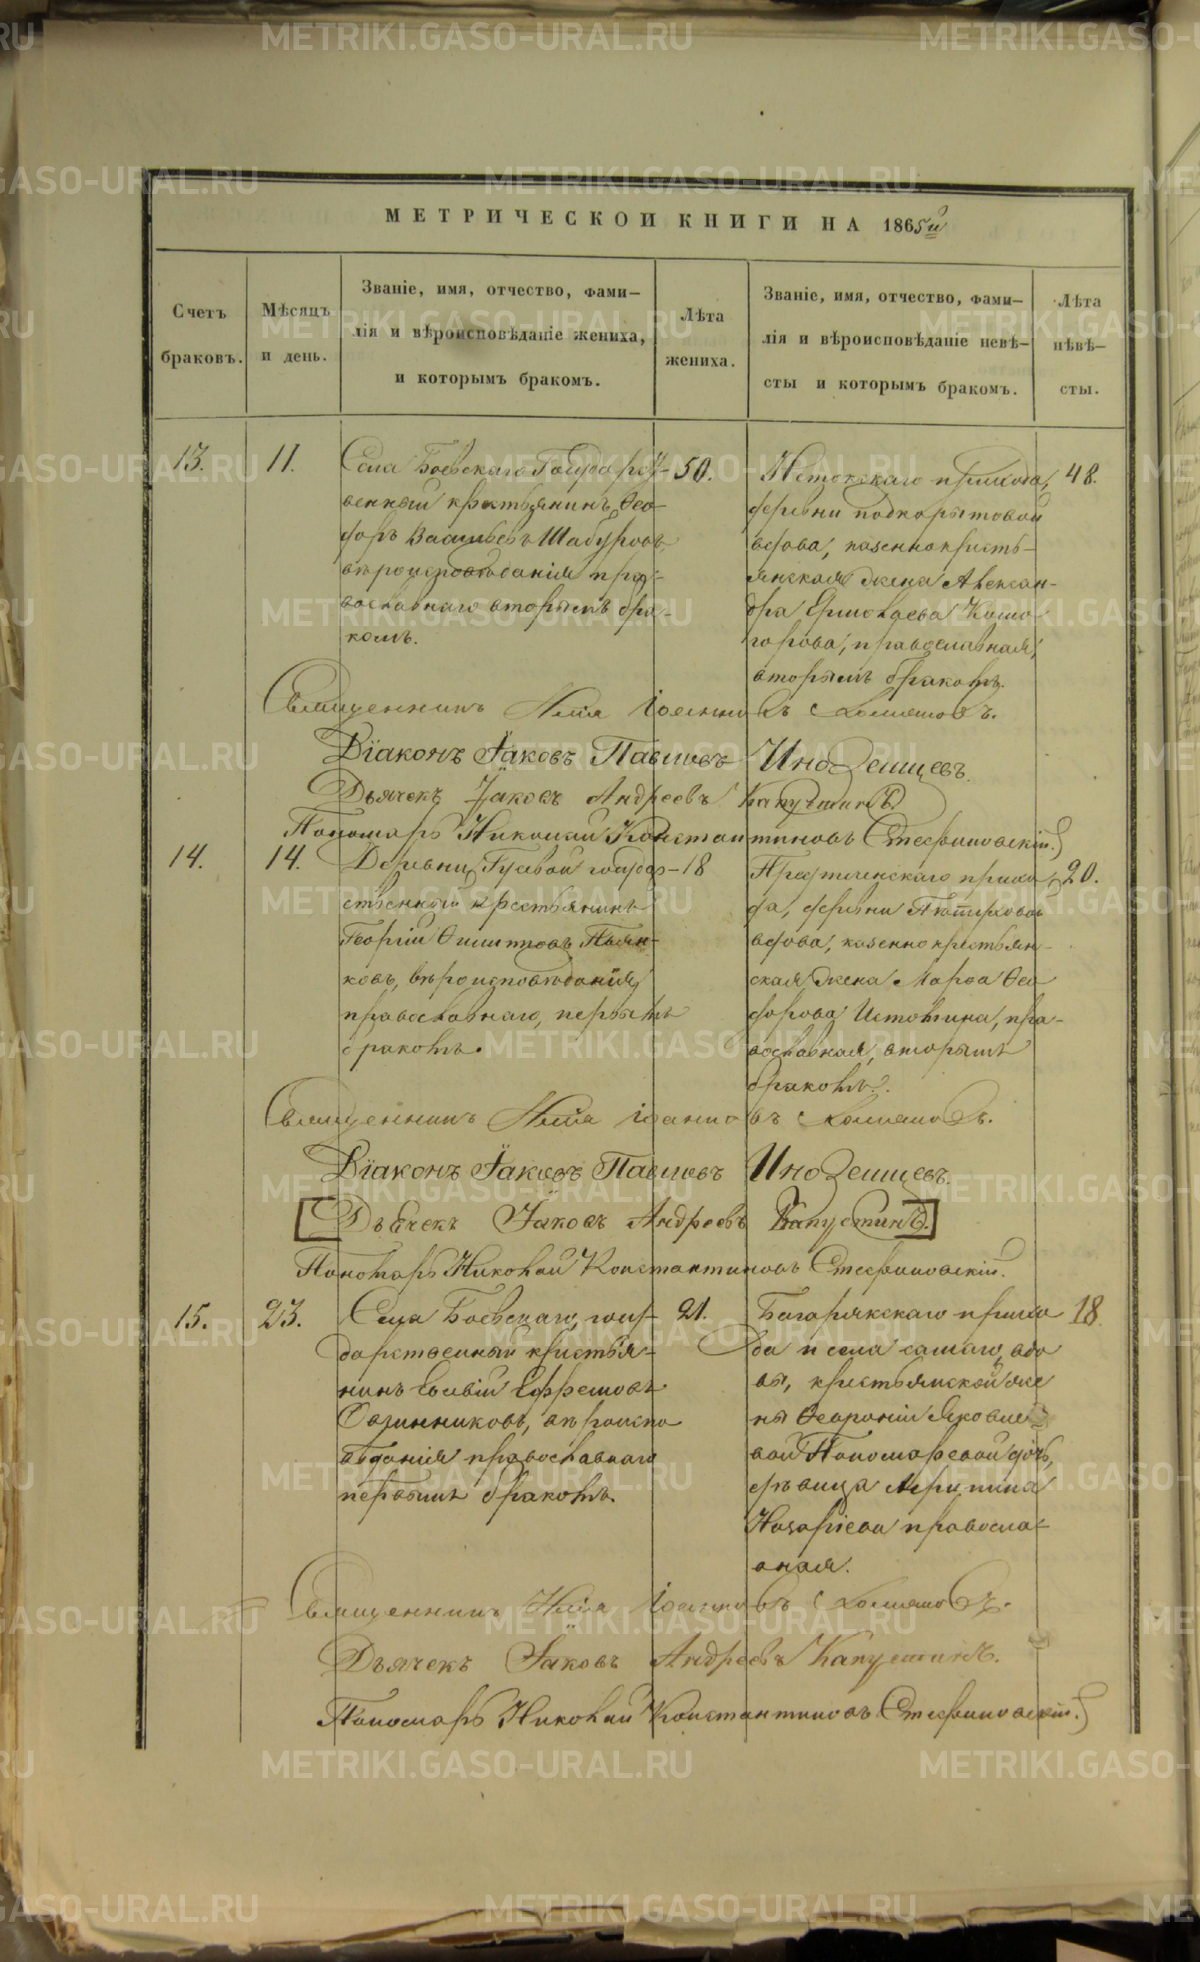 МЕТРИЧЕСКОЙ КНИГИ НА 1865й
Счетъ браковъ.
Мѣсяцъ и день.
Званіе, имя, отчество, фами-
лія и вѣроисповѣданіе жениха,
и которымъ бракомъ.
Лѣта жениха.
Званіе, имя, отчество, фами-
лія и вѣроисповѣданіе невѣ-
сты и которымъ бракомъ.
Лѣта невѣ-
сты.
13.
11.
Села Боевскаго Государст-
венный крестьянинъ Ѳео-
доръ Васильевъ Шабуровъ,
вѣроисповѣданія пра-
вославнаго вторымъ бра-
комъ.
50.
прихода,
деревни Подкорытовой
вдова, казеннокресть-
янская жена Алексан-
дра Ермолаева Комо-
горова, православная,
вторымъ бракомъ.
48.
Священникъ Илія Іоанновъ
Діаконъ Іаковъ Павловъ Иноземцевъ.
Дьячекъ Іаковъ Андреевъ Капустинъ
Пономарь Николай Константиновъ Стефановскій.
14.
14.
Деревни Гусевой государ-
ственный крестьянинъ
Георгій Филиповъ Пьян-
ковъ, вѣроисповѣданія
православнаго, первымъ
бракомъ.
18
прихо-
да, деревни
вдова, казеннокрестьян-
ская жена Марѳа Ѳео-
дорова Истомина, пра-
вославная, вторымъ
бракомъ.
20.
Священникъ Илія Іоанновъ
Діаконъ Іаковъ Павловъ Иноземцевъ.
Дьячекъ Іаковъ Андреевъ Капустинъ.
Пономарь Николай Константиновъ Стефановскій.
15.
23.
Села Боевскаго, госу-
дарственный крестья-
нинъ Евсевій Ефремовъ
Овчинниковъ, вѣроиспо-
вѣданія православнаго
первымъ бракомъ.
21.
Багарякскаго прихо-
да и села самаго, вдо-
вы, крестьянской же-
ны Ѳевроніи Яковле-
вой Пономаревой дочь,
дѣвица Агрипина
Назаріева правосла-
вная.
18
Священникъ Илія Іоанновъ
Дьячекъ Іаковъ Андреевъ Капустинъ.
Пономарь Николай Константиновъ Стефановскій.
METRIKI.GASO-URAL.RU